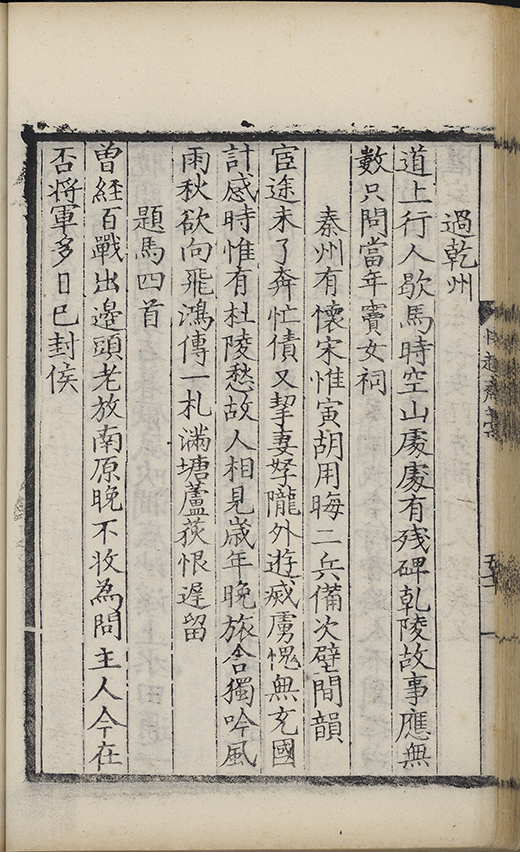 過乾州
道上行人歇馬時空山處處有残碑乾陵故事應無
數只問當年竇女祠
秦州有懷宋惟寅胡用晦二兵備次壁間韻
宦途未了奔忙債又挈妻孥隴外遊威虜愧無充國
計感時惟有杜陵愁故人相見歳年晚旅舍獨吟風
雨秋欲向飛鴻傳一札滿塘蘆荻恨遲留
題馬四首
曾經百戰出邊頭老放南原晚不收為問主人今在
否將軍多日已封侯